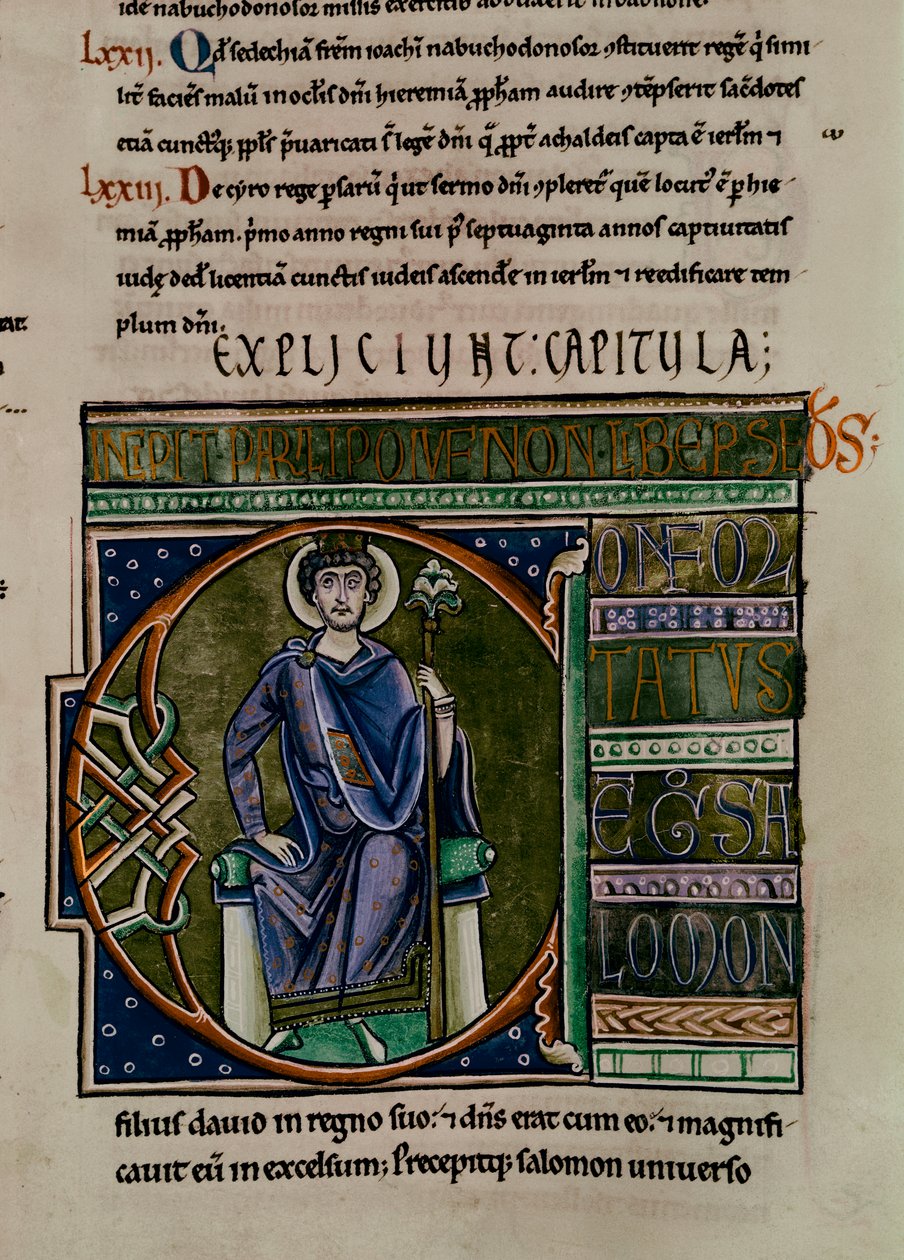 ide nabuchodonosor missis exercitib adduxerit in babilone.
Lxxij. Qd̄ sedechiā frēm ioachī nabuchodonosor ꝯstituerit regē q̇ simi-
lit̄ faciēs malū in ocl̄is dn̄i hieremiā ꝓph̄am audire ꝯtēpserit sac̄dotes
etiā cunctꝰq; ppl̄s p̄uaricati s̄ legē dn̄i q̄ ꝓpt̄ a chaldeis capta ē ierl̄m ⁊
Lxxiij. De cyro rege ꝑsarū q̇ ut sermo dn̄i ꝯpleret᷑ quē locutꝰ ē ꝑ hie-
miā ꝓph̄am. ṗmo anno regni sui pꝰ septuaginta annos captiuitatis
iudę ded̄ licentiā cunctis iudeis ascend̄e in ierl̄m ⁊ reedificare tem-
plum dn̄i.
EXPLICIUNT: CAPITULA;
INCIPIT PARALIPOMENON LIBER SEC̄DS:
C
ONFOR
TATVS
E G̊ SA
LOMON
filius dauid in regno suo. ⁊ dn̄s erat cum eo. ⁊ magnifi-
cauit eū in excelsum; Precepitq; salomon uniuerso